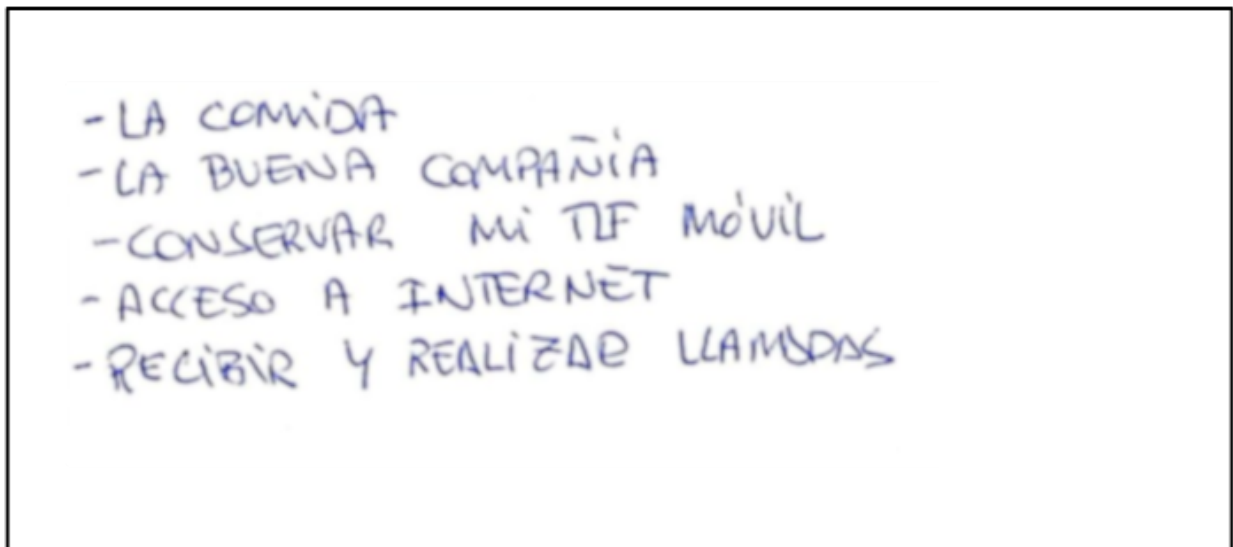 - LA COMIDA
- LA BUENA COMPAÑÍA
- CONSERVAR MI TLF MÓVIL
- ACCESO A INTERNET
- RECIBIR Y REALIZAR LLAMADAS